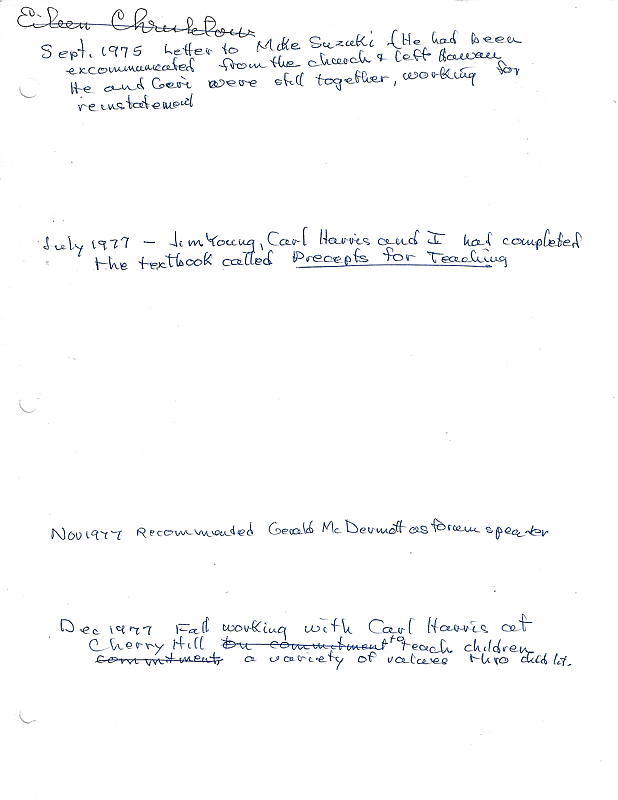 Eileen
Sept. 1975 Letter to Mike Suzuki (He had been
excommunicated from the church & left Hawaii
He and Geri were still together, working for
reinstatement
July 1977 – Jim Young, Carl Harris and I had completed
the textbook called Precepts for Teaching
Nov 1977 Recommended Gerald McDermott as forum speaker
Dec 1977 Fall working with Carl Harris at
Cherry Hill on commitment to teach children
commitment, a variety of values thro child lit.